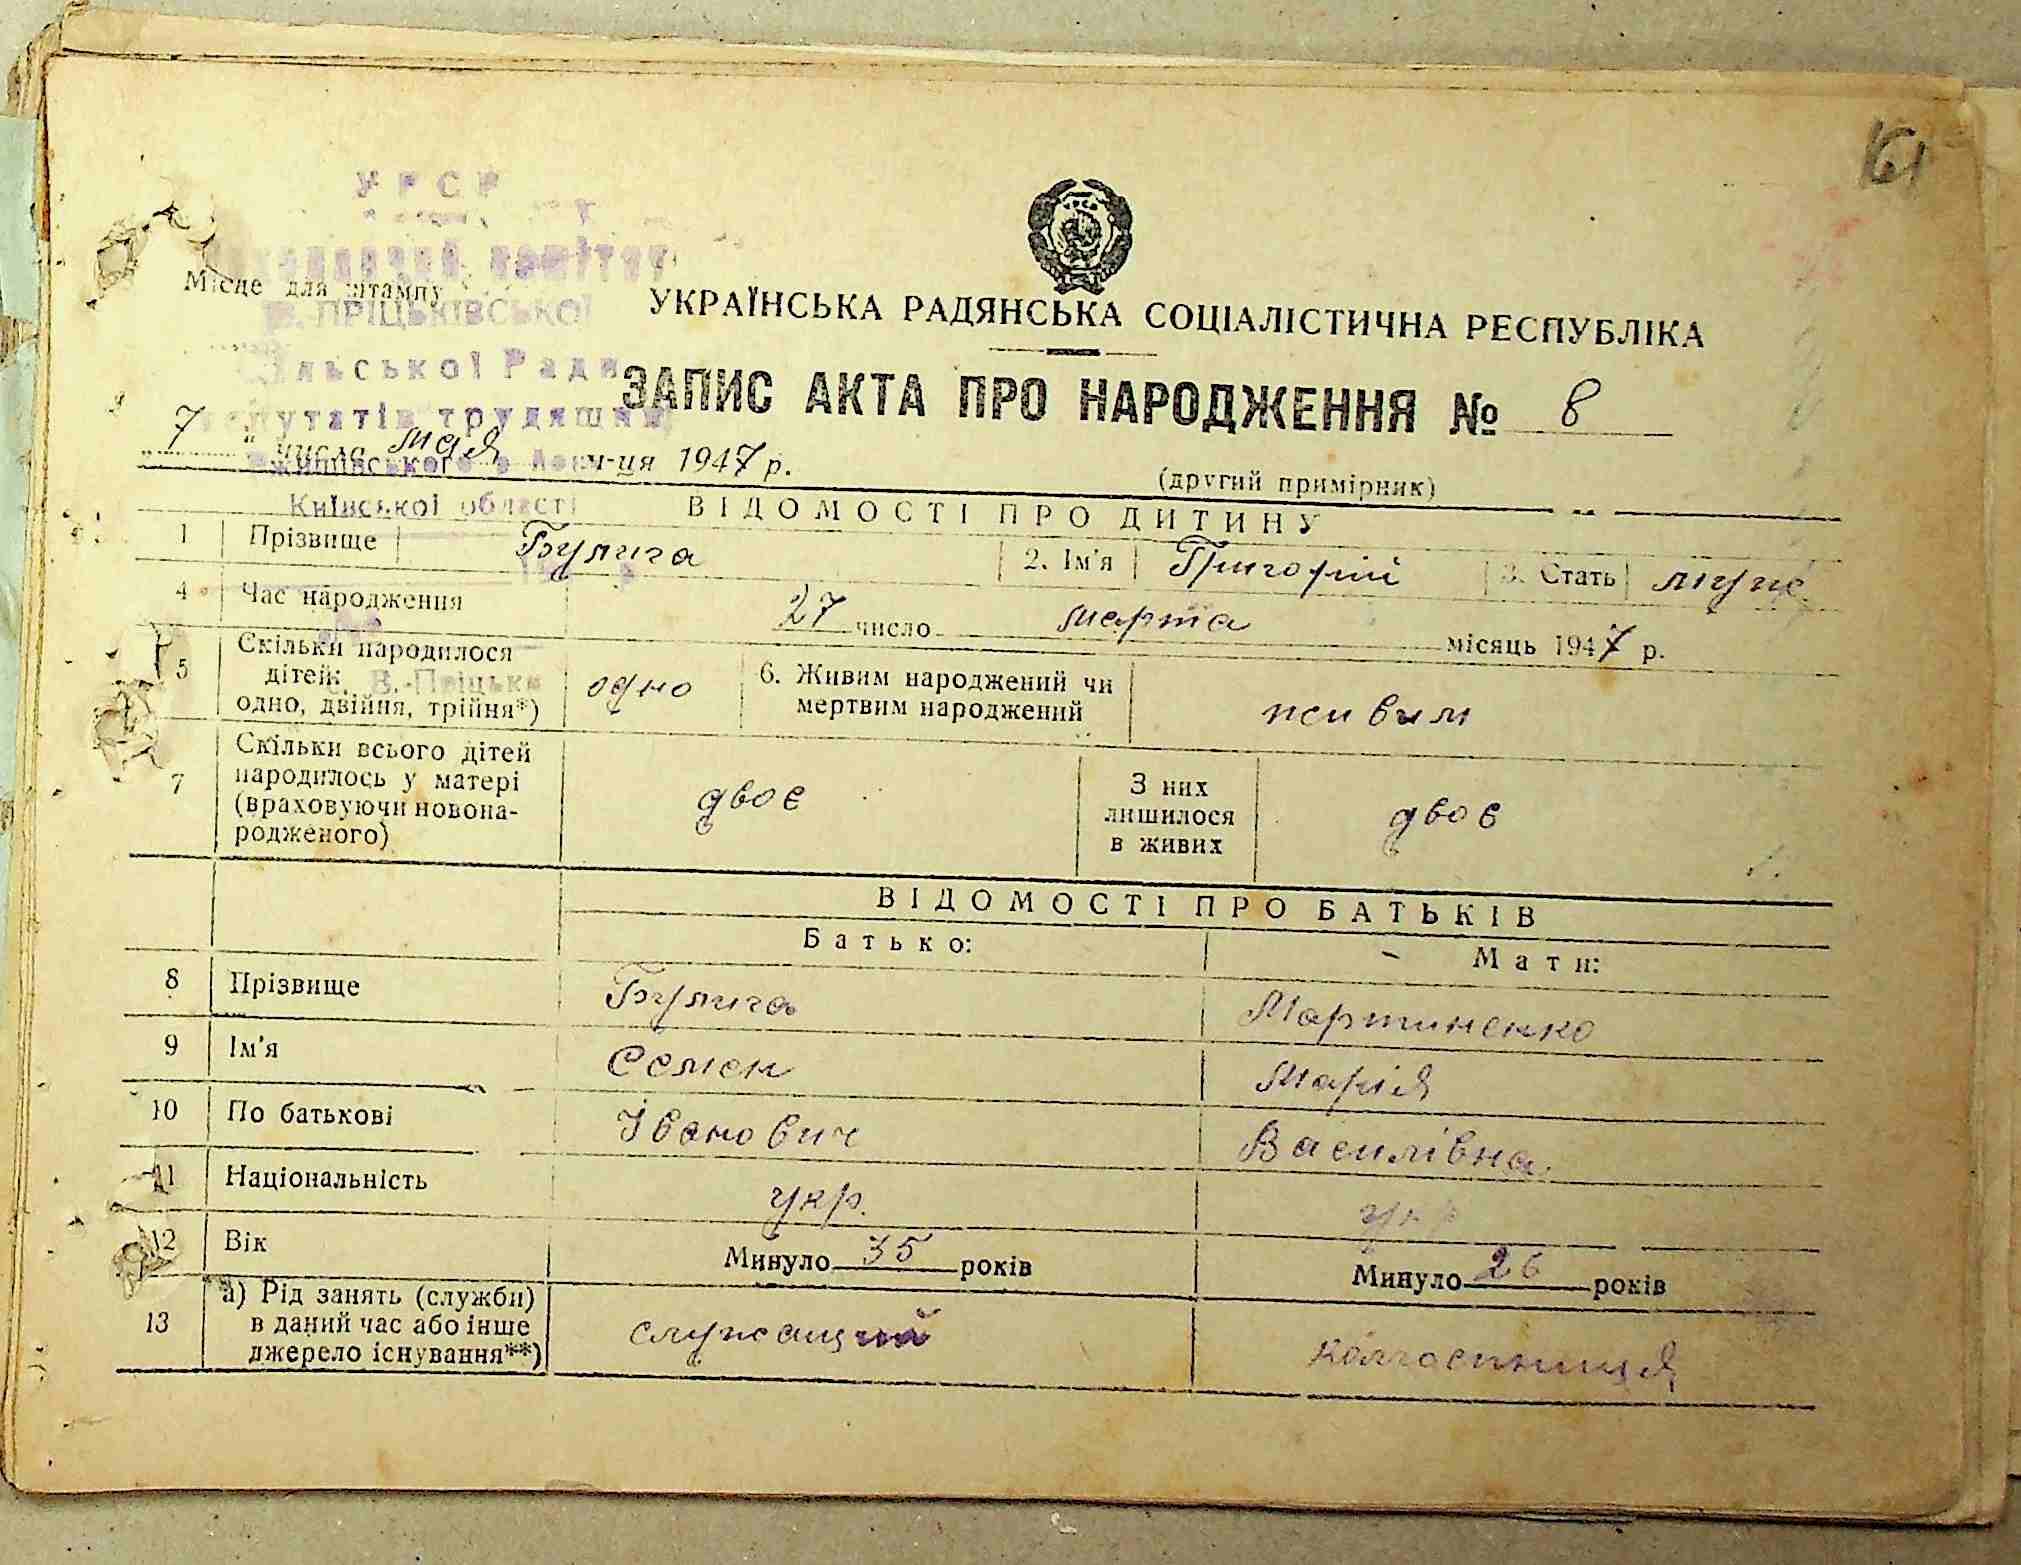 161
УРСР
Виконавчий комітет
Місце для штампу
В. ПРІЦЬКІВСЬКОЇ
УКРАЇНСЬКА РАДЯНСЬКА СОЦІАЛІСТИЧНА РЕСПУБЛІКА
Сільської Ради
ЗАПИС АКТА ПРО НАРОДЖЕННЯ № 8
депутатів трудящих
7 " число мая м-ця 1947 р.
(другий примірник)
Київської області
ВІДОМОСТІ ПРО ДИТИНУ
1 Прізвище Булига 2. Ім'я Григорій 3. Стать муже.
4 Час народження 27 число марта місяць 1947 р.
5 Скільки народилося дітей: одно, двійня, трійня*) одно 6. Живим народжений чи мертвим народжений живим
с. В.-Пріцьки
7 Скільки всього дітей народилось у матері (враховуючи новонародженого) двоє З них лишилося в живих двоє
ВІДОМОСТІ ПРО БАТЬКІВ
Батько: Мати:
8 Прізвище Булига Мартиненко
9 Ім'я Семен Марія
10 По батькові Іванович Василівна
11 Національність укр. укр
12 Вік Минуло 35 років Минуло 26 років
13 а) Рід занять (служби) в даний час або інше джерело існування**) служащий колгоспниця